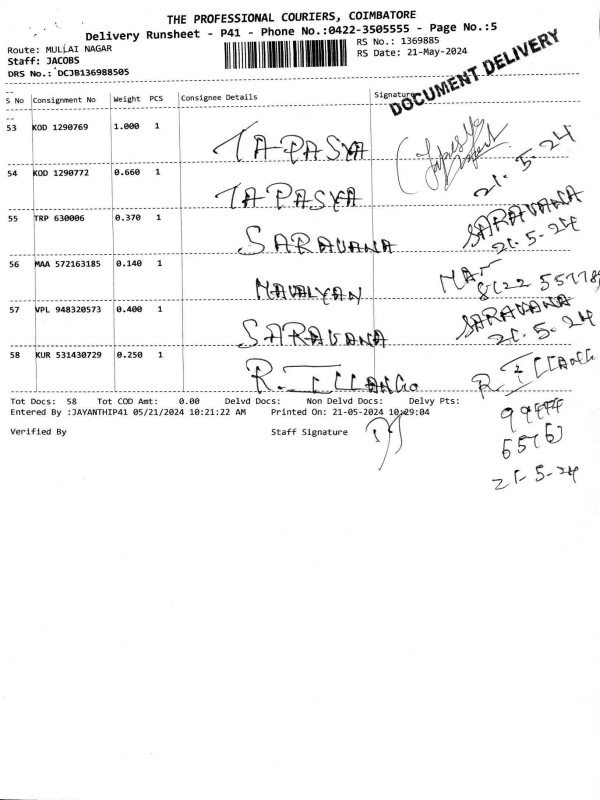 THE PROFESSIONAL COURIERS, COIMBATORE
Delivery Runsheet - P41 - Phone No.:0422-3505555 - Page No.:5
Route: MULLAI NAGAR RS No.: 1369885
Staff: JACOBS RS Date: 21-May-2024
DRS No.: DCJB136988505
DOCUMENT DELIVERY
S No Consignment No Weight PCS Consignee Details Signature
53 KOD 1290769 1.000 1 TAPASYA
21-5-24
54 KOD 1290772 0.660 1 TAPASYA
55 TRP 630006 0.370 1 SARAVANA SARAVANA
21-5-24
56 MAA 572163185 0.140 1
57 VPL 948320573 0.400 1 SARAVANA SARAVANA
21.5-24
58 KUR 531430729 0.250 1 R. ILLANGO R. ILLANGO
Tot Docs: 58 Tot COD Amt: 0.00 Delvd Docs: Non Delvd Docs: Delvy Pts:
Entered By :JAYANTHIP41 05/21/2024 10:21:22 AM Printed On: 21-05-2024 10:29:04
Verified By Staff Signature
21-5-24